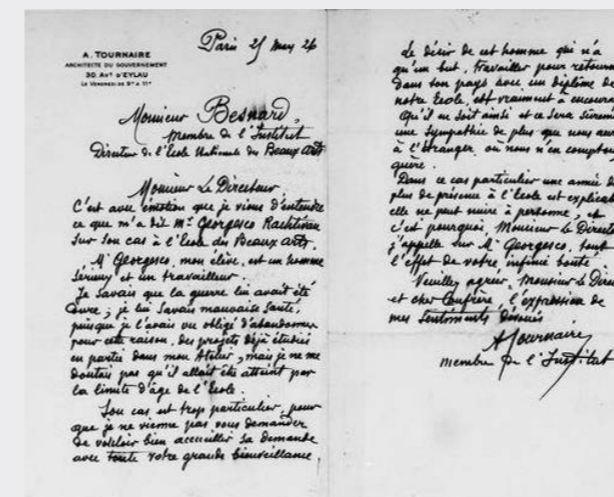 A. TOURNAIRE
ARCHITECTE DU GOUVERNEMENT
30 AVT D'EYLAU
LE VENDREDI DE 9H A 11H
Paris 25 26
Monsieur Besnard,
membre de l'Institut
Directeur de l'Ecole Nationale des Beaux Arts
Monsieur Le Directeur,
C'est avec émotion que je viens d'entendre
ce que m'a dit Mr Georgesco
sur son cas à l'Ecole des Beaux Arts.
Mr Georgesco, mon élève, est un homme
sérieux et un travailleur.
Je savais que la guerre lui avait été
dure ; je lui savais mauvaise santé,
puisque je l'avais vu obligé d'abandonner
pour cette raison, des projets déjà étudiés
en partie dans mon Atelier, mais je ne me
doutais pas qu'il allait être atteint par
la limite d'âge de l'Ecole.
Son cas est trop particulier, pour
que je ne vienne pas vous demander
de vouloir bien accueillir sa demande
avec toute votre grande bienveillance.
Le désir de cet homme qui n'a
qu'un but, travailler pour retourn
dans son pays avec un diplôme de
notre Ecole, est vraiment à encour
Qu'il en soit ainsi et ce sera
une sympathie de plus que nous
à l'étranger où nous n'en compton
guère.
Dans ce cas particulier une année de
plus de présence à l'Ecole est explicab
elle ne peut nuire à personne, et
c'est pourquoi, Monsieur le Directe
j'appelle sur Mr Georgesco, tout
l'effet de votre infinie bonté.
Veuillez agréer, Monsieur le Direc
et cher Confrère, l'expression de
mes sentiments dévoués
A Tournaire
membre de l'Institut